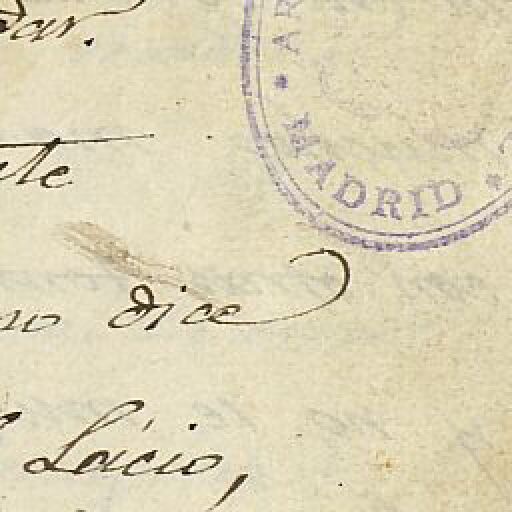 dar.
te
no dice
Lácio,
* MADRID *